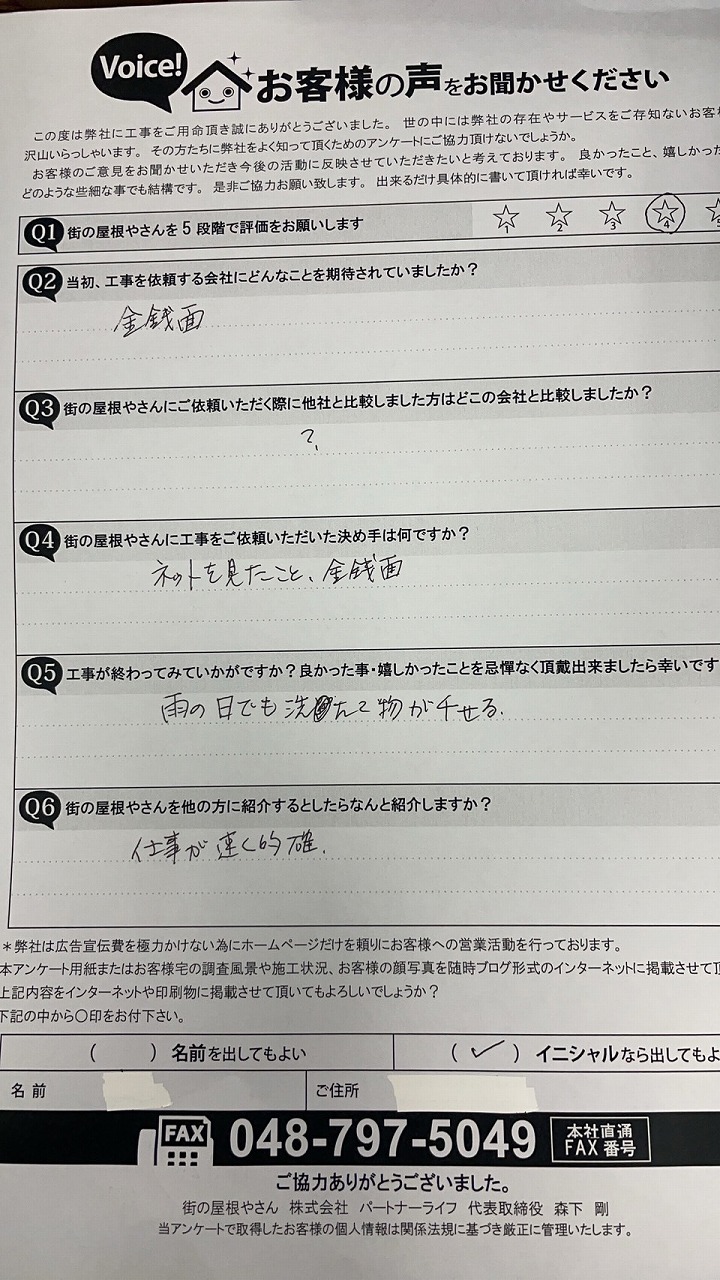 Voice! お客様の声をお聞かせください
この度は弊社に工事をご用命頂き誠にありがとうございました。 世の中には弊社の存在やサービスをご存知ないお客様
沢山いらっしゃいます。 その方たちに弊社をよく知って頂くためのアンケートにご協力頂けないでしょうか。
お客様のご意見をお聞かせいただき今後の活動に反映させていただきたいと考えております。 良かったこと、嬉しかった
どのような些細な事でも結構です。 是非ご協力お願い致します。 出来るだけ具体的に書いて頂ければ幸いです。
Q1 街の屋根やさんを5段階で評価をお願いします ☆1 ☆2 ☆3 ☆4 ☆5
Q2 当初、工事を依頼する会社にどんなことを期待されていましたか？
金銭面
Q3 街の屋根やさんにご依頼いただく際に他社と比較しました方はどこの会社と比較しましたか？
?
Q4 街の屋根やさんに工事をご依頼いただいた決め手は何ですか？
ネットを見たこと、金銭面
Q5 工事が終わってみていかがですか？良かった事・嬉しかったことを忌憚なく頂戴出来ましたら幸いです
雨の日でも洗たく物が干せる.
Q6 街の屋根やさんを他の方に紹介するとしたらなんと紹介しますか？
仕事が速く的確.
＊弊社は広告宣伝費を極力かけない為にホームページだけを頼りにお客様への営業活動を行っております。
本アンケート用紙またはお客様宅の調査風景や施工状況、お客様の顔写真を随時ブログ形式のインターネットに掲載させて頂
上記内容をインターネットや印刷物に掲載させて頂いてもよろしいでしょうか？
下記の中から〇印をお付下さい。
（　）名前を出してもよい （✓）イニシャルなら出してもよ
名前 ご住所
FAX 048-797-5049 本社直通 FAX番号
ご協力ありがとうございました。
街の屋根やさん 株式会社 パートナーライフ 代表取締役 森下 剛
当アンケートで取得したお客様の個人情報は関係法規に基づき厳正に管理いたします。